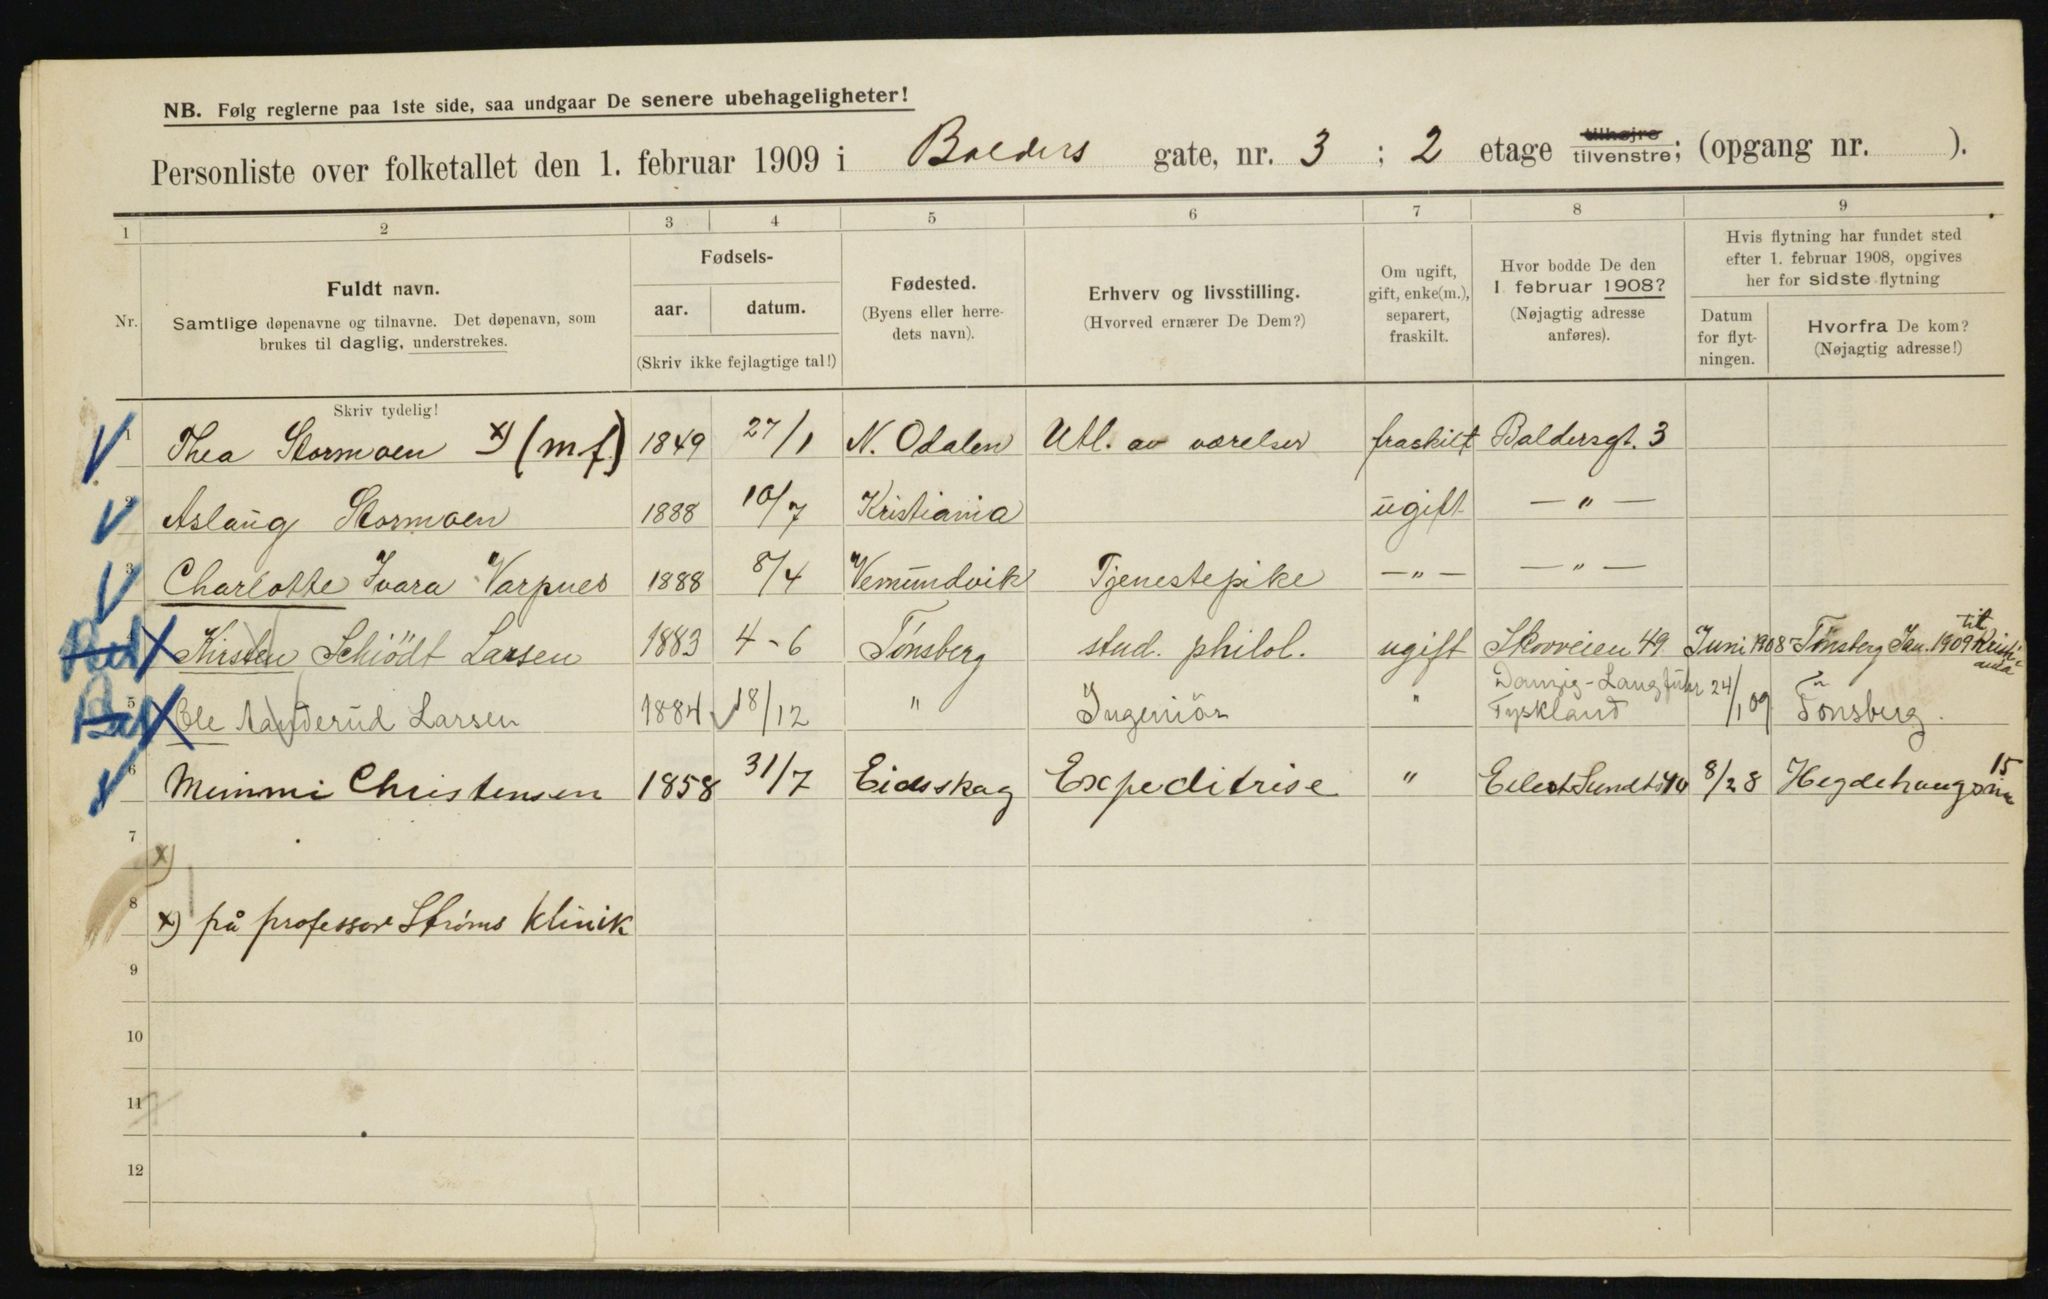 NB. Følg reglerne paa 1ste side, saa undgaar De senere ubehageligheter!
Personliste over folketallet den 1. februar 1909 i Balders gate, nr. 3 ; 2 etage tilhøjre tilvenstre; (opgang nr. ).
1 2 3 4 5 6 7 8 9
Nr.
Fuldt navn.
Samtlige døpenavne og tilnavne. Det døpenavn, som
brukes til daglig, understrekes.
Skriv tydelig!
Fødsels-
aar. datum.
(Skriv ikke fejlagtige tal!)
Fødested.
(Byens eller herre-
dets navn).
Erhverv og livsstilling.
(Hvorved ernærer De Dem?)
Om ugift,
gift, enke(m.),
separert,
fraskilt.
Hvor bodde De den
1 februar 1908?
(Nøjagtig adresse
anføres).
Hvis flytning har fundet sted
efter 1. februar 1908, opgives
her for sidste flytning
Datum
for flyt-
ningen.
Hvorfra De kom?
(Nøjagtig adresse!)
1 Thea Stormoen x) (m.f.) 1849 27/1 N. Odalen Utl. av værelser fraskilt Baldersgt. 3
2 Aslaug Stormoen 1888 10/7 Kristiania ugift — " —
3 Charlotte Ivara Varpnes 1888 8/4 Vemundvik Tjenestepike — " — — " —
4 Kirsten Schiödt Larsen 1883 4-6 Tönsberg stud. philol. ugift Skovveien 49 Juni 1908 Tønsberg Jan. 1909 til Kristiania
5 Ole Aanderud Larsen 1884 18/12 " Ingeniör " Danzig-Langfuhr Tyskland 24/1 09 Tønsberg.
6 Mimmi Christensen 1858 31/7 Eidsskog Expeditrise " Eilert Sundts 40 8/2 8 Hegdehaugsvn 15
7 x)
8 x) på professor Strøms klinik
9
10
11
12